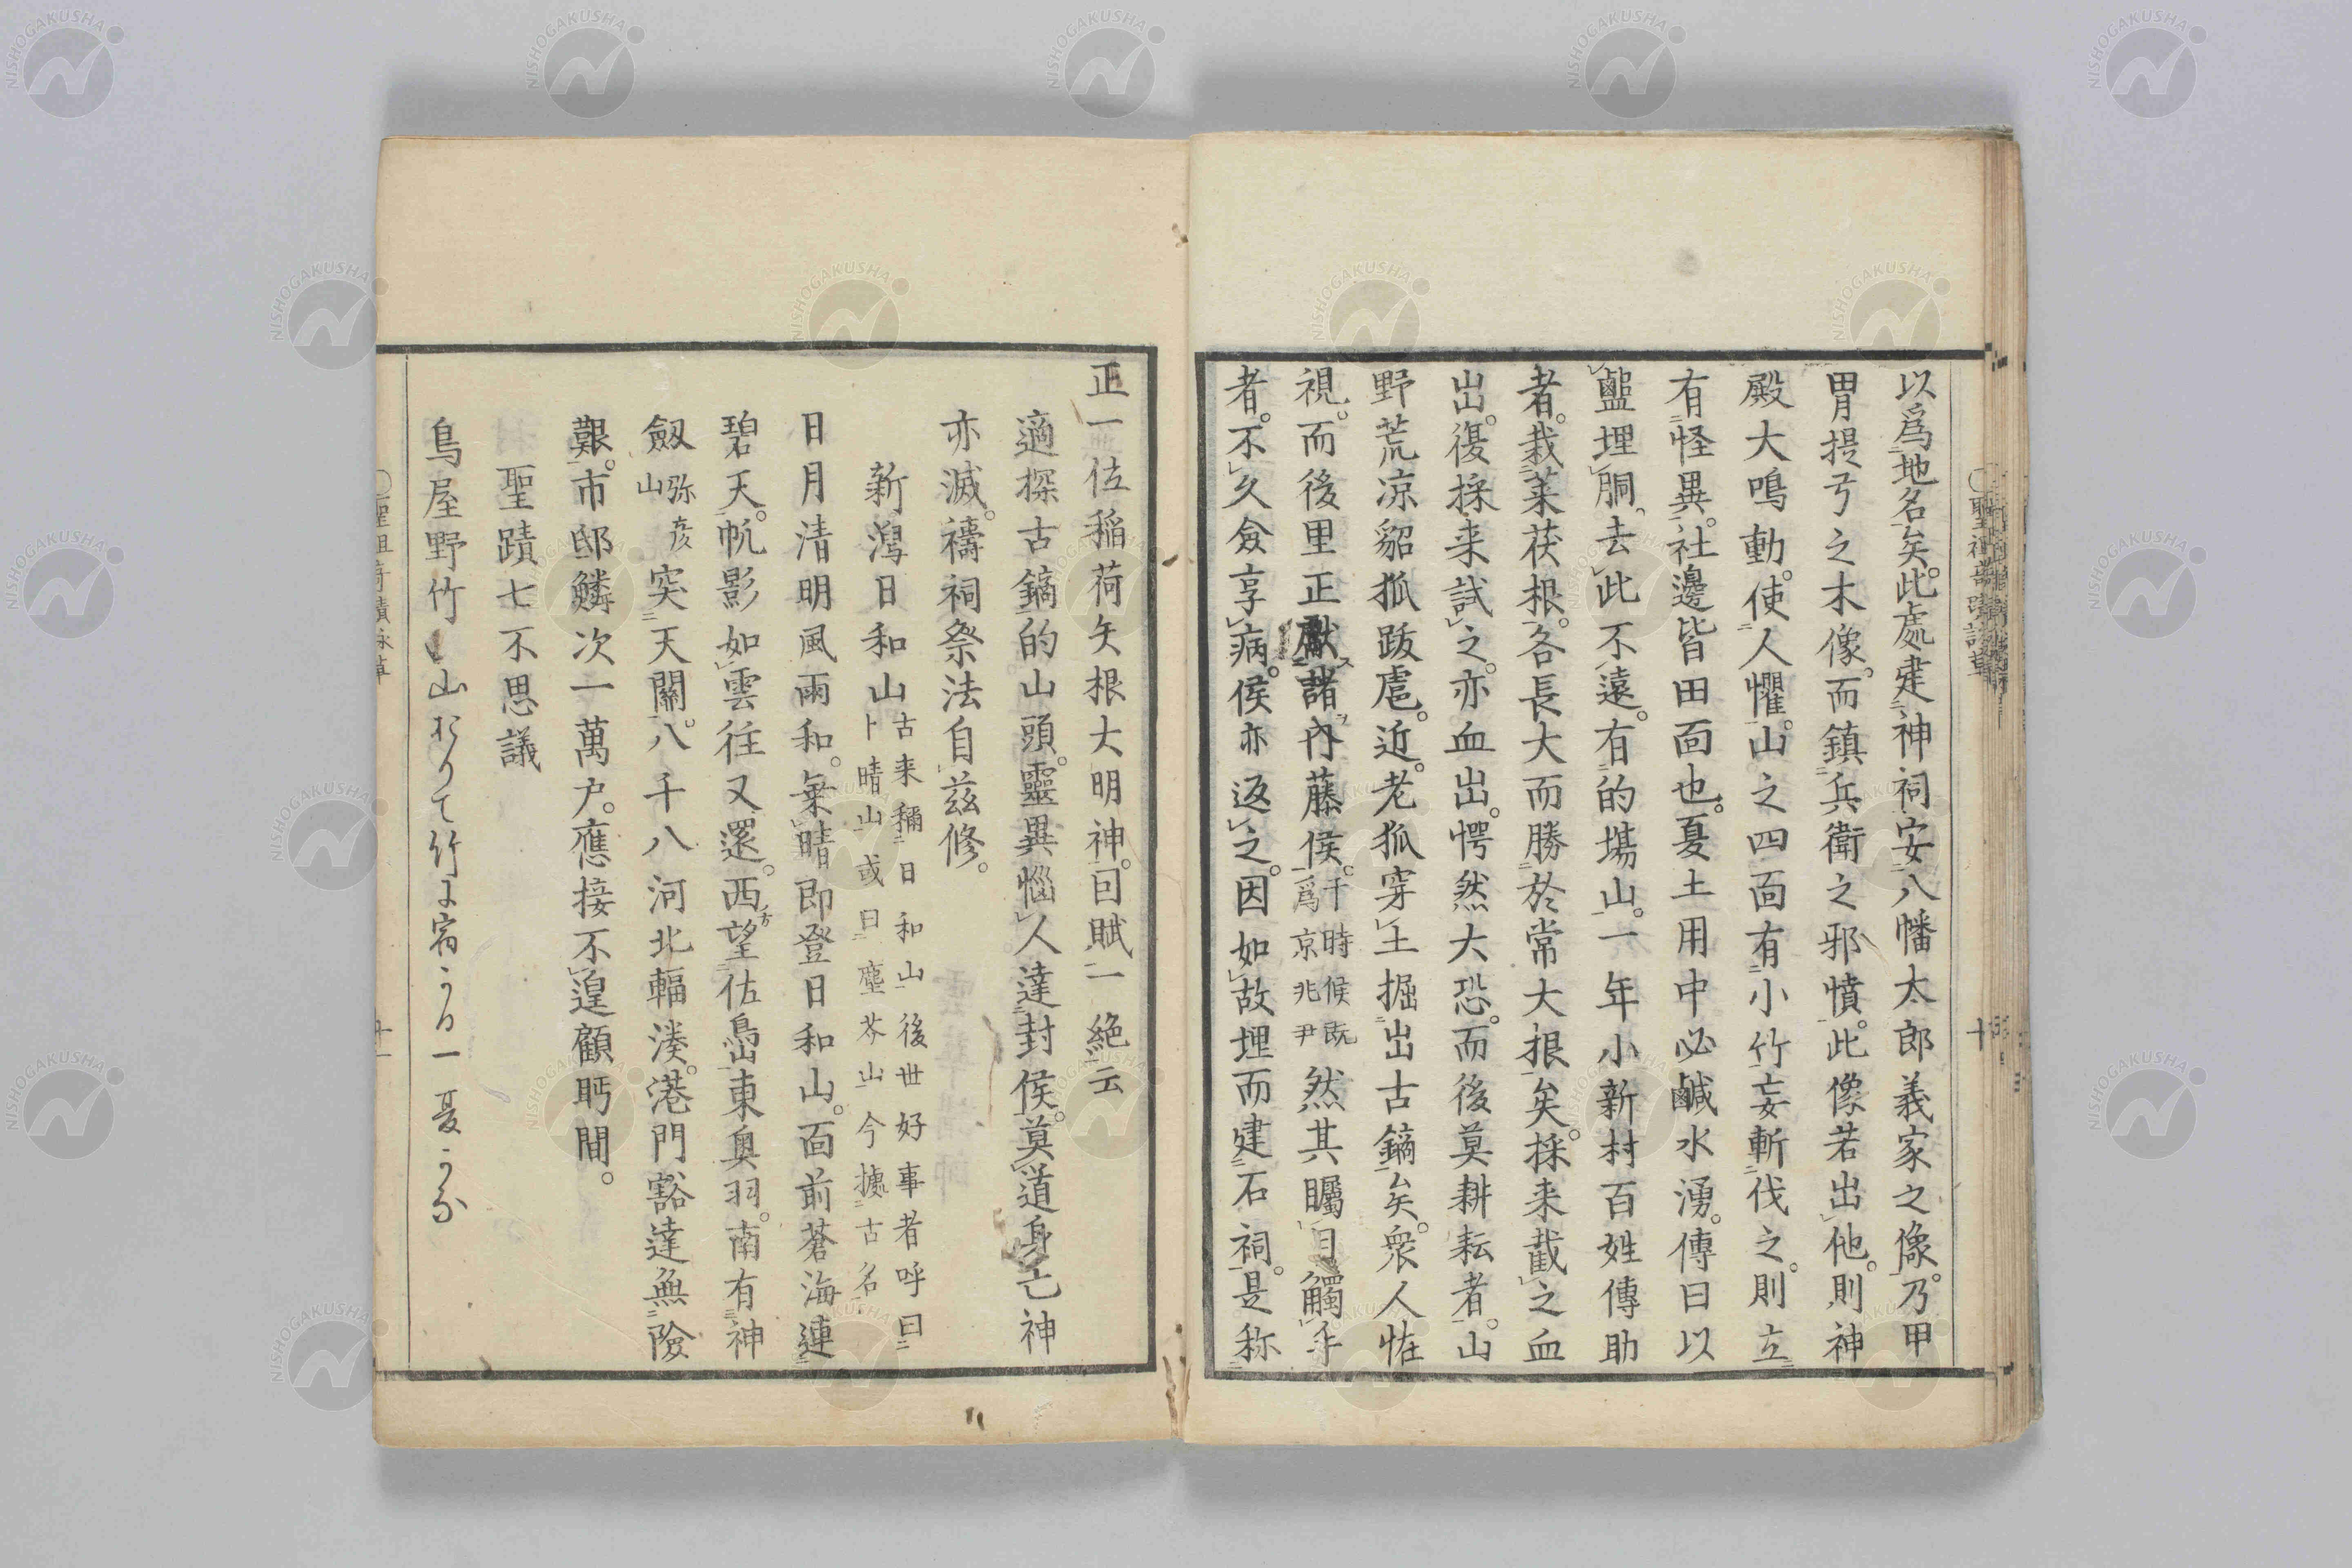 以爲地名矣。此處建神祠安八幡太郎義家之像。乃甲
冑提弓之木像。而鎮兵衛之邪憤。此像若出他。則神
殿大鳴動。使人懼。山之四面有小竹妄斬伐之。則立
有怪異。社邊皆田面也。夏土用中必鹹水湧。傳曰以
鹽埋胴去此不遠。有的塲山。一年小新村百姓傳助
者。栽莱茯根。各長大而勝於常大根矣。採来截之血
出。復採来試之。亦血出。愕然大恐。而後莫耕耘者。山
野荒凉貂狐跋扈。近。老狐穿土掘出古鏑矣。衆人恠
視。而後里正獻諸內藤侯。
于時候既
爲京兆尹
然其矚目觸手
者。不久僉享病。侯亦返之。因如故埋而建石祠。是称
十
正一位稲荷矢根大明神。囙賦一絶云
適探古鏑的山頭。靈異惱人達封侯。莫道身亡神
亦滅。禱祠祭法自茲修。
新潟日和山
古来稱日和山後世好事者呼曰
卜晴山或曰塵芥山今攄古名
日月清明風雨和。乗晴即登日和山。面前蒼海連
碧天。帆影如雲往又還。西方望佐嶌山東奥羽。南有神
劔
弥彦
山
突天關。八千八河北輻湊。港門豁達無險
艱。市邸鱗次一萬户。應接不遑顧眄間。
聖蹟七不思議
鳥屋野竹
山
竹
宿
一夏
十一
NISHOGAKUSHA
NISHOGAKUSHA
NISHOGAKUSHA
NISHOGAKUSHA
NISHOGAKUSHA